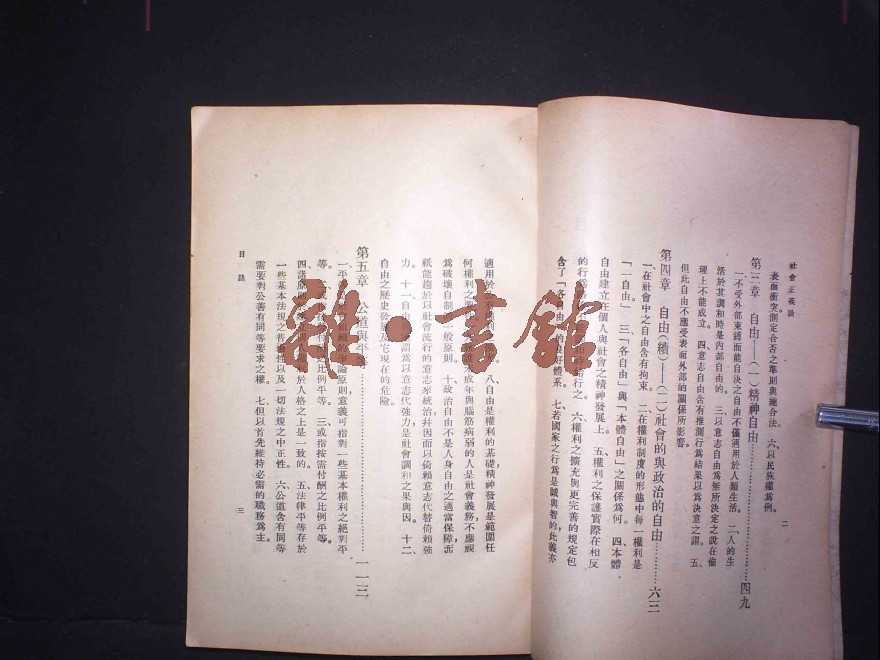 社會正義論
二
表面衝突測定合否之準則與總合法 六、以民族權爲例。
第三章 自由——(一)精神自由…………四九
一、不受外部束縛而能自決之自由不僅適用於人類生活。 二、人的生
活於其調和時是內部自由的。 三、以意志自由爲無所決定之說在倫
理上不能成立。 四、意志自由含有推測行爲結果以爲決意之謂。 五、
但此自由不應受表面外部的關係所影響。
第四章 自由(續)——(二)社會的與政治的自由…………六三
一、在社會中之自由含有拘束。 二、在權利制度的形態中每一權利是
「一自由」 三、「各自由」與「本體自由」之關係爲何。 四、本體
自由建立在個人與社會之精神發展上。 五、權利之保護實際在相反
的行爲 行之。 六、權利之擴充與更完善的規定包
含了「各自由」的 體系。 七、若國家之行爲是誠與智的此義亦
適用於公 八、自由是權利的基礎,精神發展是範圍任
何權利之 未成年與腦筋病弱的人是社會義務不應視
爲破壞自制 一般原則。 十、政治自由不是人身自由之適當保障而
祇能趨於以社會流行的意志來統治幷因而以倚賴意志代替倚賴強
力。 十一、自由 謂爲以意志代強力,是社會調和之果與因。 十二、
自由之歷史發展及它現在的危險。
第五章 公道與平等…………一一三
一、平 論原則意義可指對一些基本權利之絕對平
等。 比例平等。 三、或指按需付酬之比例平等。
四、諸原則 利於人格之上是一致的。 五、法律平等存於
一些基本法規之普 性以及一切法規之中正性。 六、公道含有同等
需要對公善有同等要求之權。 七、但以首先維持必需的職務爲主。
目錄
三
雜·書館